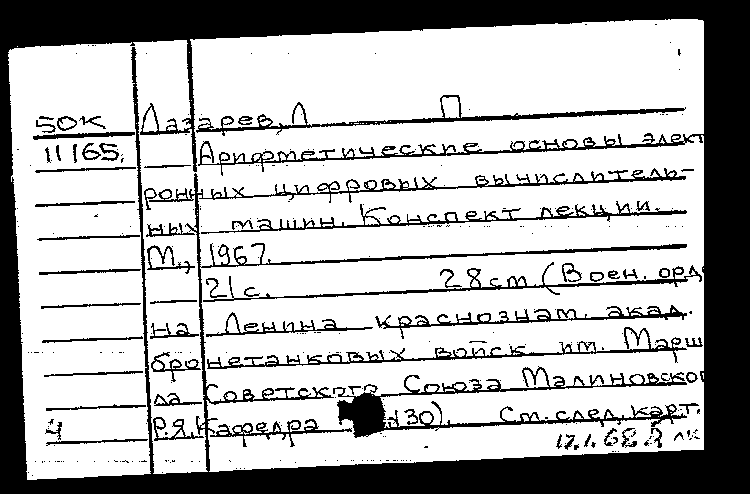 50К Лазарев, Л П
11165. Арифметические основы элект
ронных цифровых вычислитель-
ных машин. Конспект лекции.
М., 1967.
21 с. 28 cm (Воен. орде
на Ленина краснознам. акад.
бронетанковых войск им. Марш
ла Советского Союза Малиновско
4 Р.Я. Кафедра N30). См. след. карт.
17.1.68